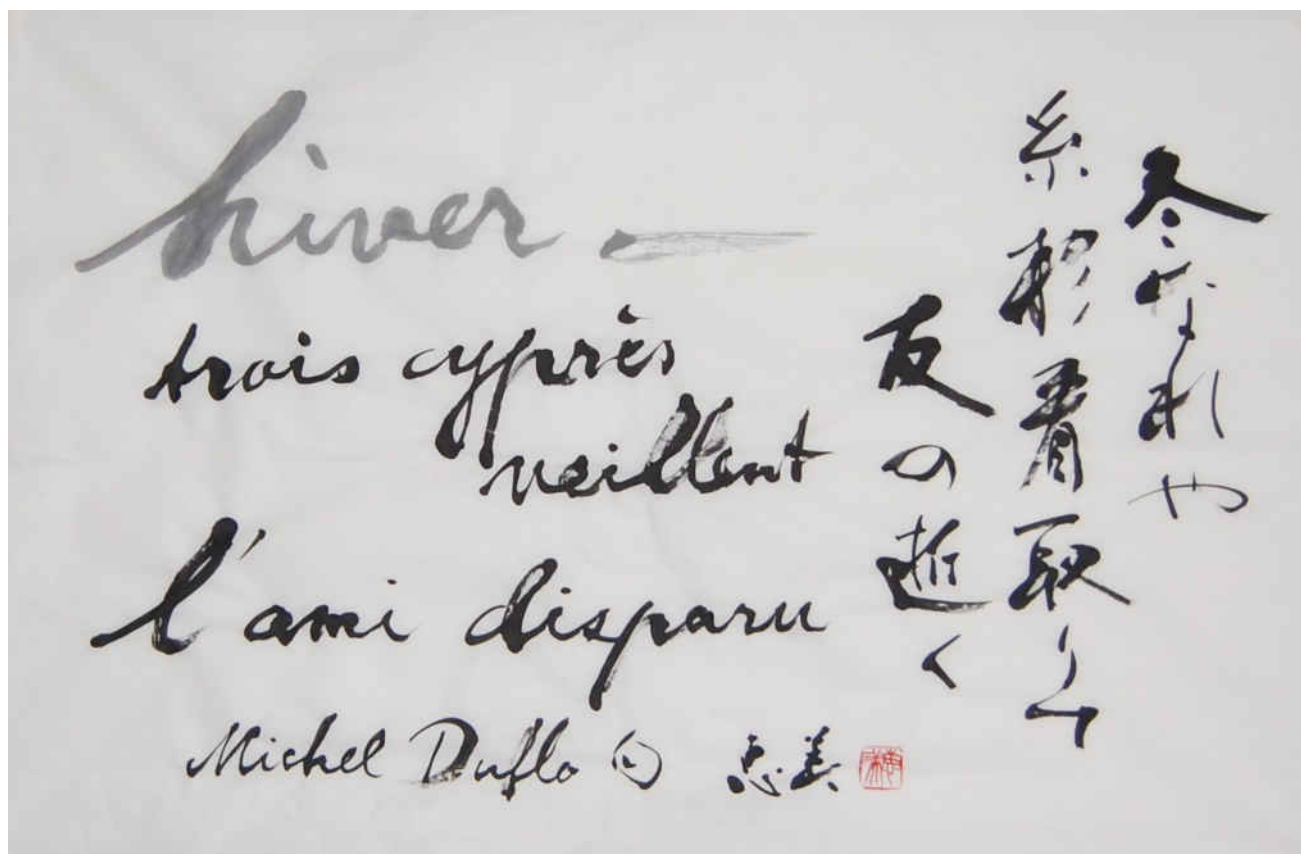 hiver —
trois cyprès
veillent
l'ami disparu
Michel Duflo 句 恵美
冬なれや
糸杉看取り
友の逝く